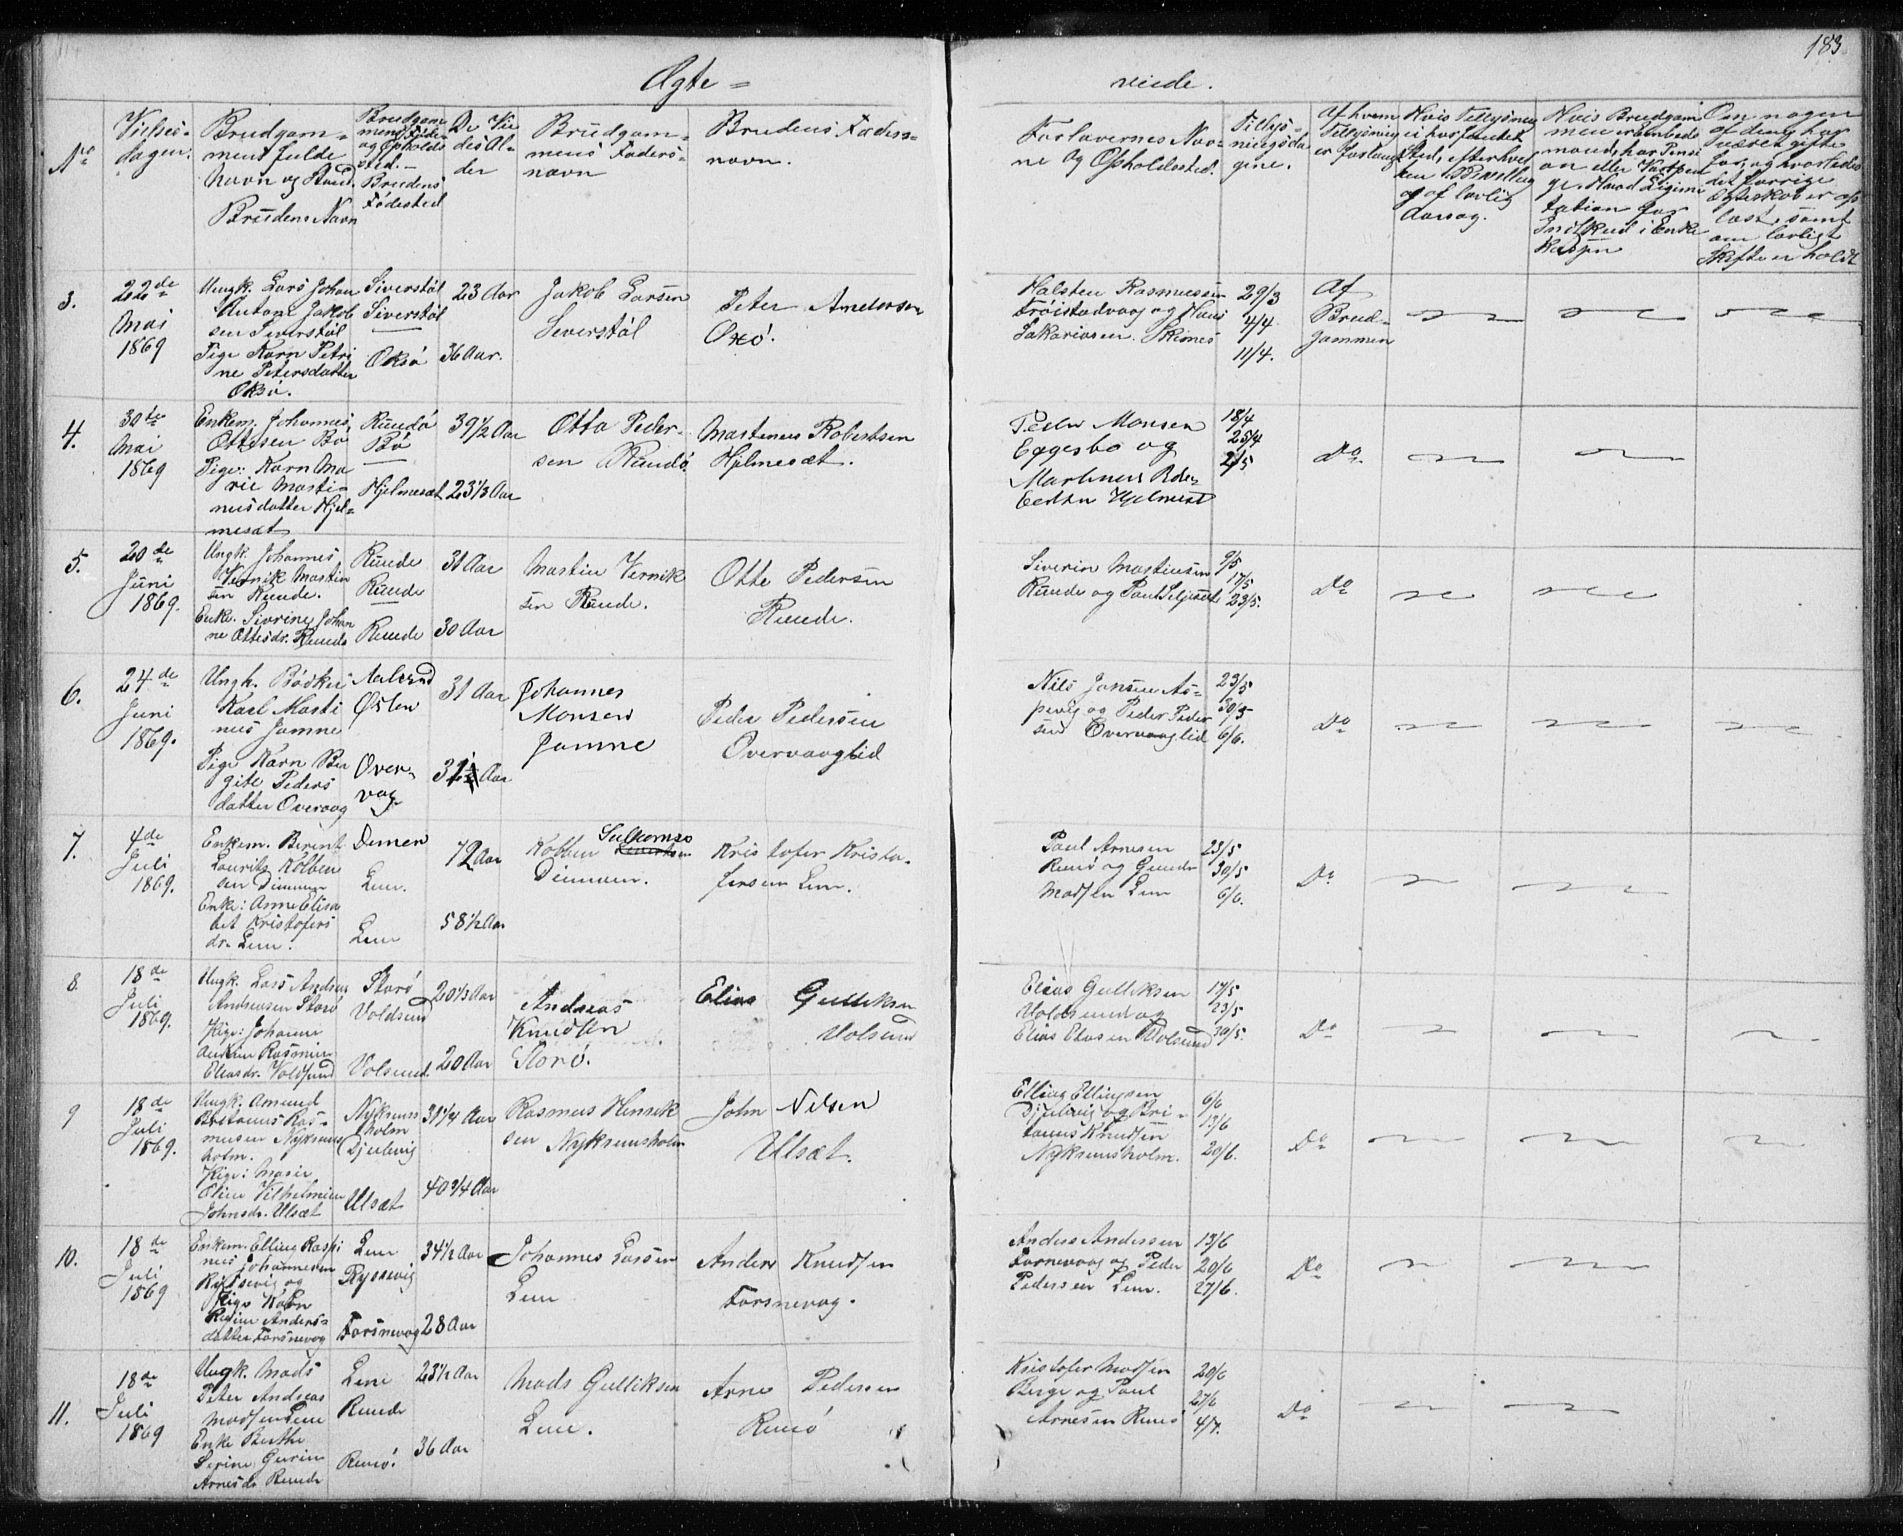 183
Ægte =
viede.
No
Vielses-
dagen.
Brudgom-
mens fulde
Navn og Stand.
Brudens Navn
Brudgom-
mens Føde-
og Opholds
sted.-
Brudens
Fødested
De Vie
des Al-
der
Brudgom-
mens Faders-
navn
Brudens Faders-
navn.
Forlovernes Nav-
ne og Opholdssted.
Tillys-
ningsda
gene.
Af hvem
Tillysning
er forlangt
Hvis Tillysning
ei har fundet
Sted, efter hvil
ken Bevilling
og af lovlig
Aarsag.
Hvis Brudgom
men er Embeds
mand, har Pensi
on eller Vartpen
ge, hvad Legiti
tation for
Indskud i Enke
Kassen
Om nogen
af dem har
været gifte
før, og hvorledes
det forrige
Ægteskab er op
løst, samt
om lovligt
Skifte er holdt
3.
22de
Mai
1869
Ungk. Lars Johan
Anton Jakob
sen Siverstøl
Pige Karn Petri
ne Petersdatter
Oksø.
Siverstøl
Siverstøl
Oksø
23 Aar
36 Aar.
Jakob Larsen
Siverstøl
Peter Andersen
Oxø.
Halsten Rasmussen
Frøistadvaag og Hans
Sakariasen Skinnes
29/3
4/4
11/4.
Af
Brud-
gommen
4.
30te
Mai
1869
Enkem. Johannes
Ottesen Bø
Pige: Karn Ma
rie Marti-
nusdatter Hjel-
mesæt
Rundø
Bø
Hjelmesæt
39 1/2 Aar
23 1/3 Aar
Otto Peder-
sen Rundø
Martinus Robertsen
Hjelmesæt.
Peder Monsen
Eggesbø og
Martinus Rob-
ertsen Hjelmesæt
18/4
25/4
2/5
Do
5.
20de
Juni
1869.
Ungk. Johannes
Vernik Martin
sen Runde.
Enke. Sivrine Johan
ne Ottesdr. Runde
Runde
Runde
Runde
31 Aar
30 Aar
Martin Vernik
sen Runde.
Otte Pedersen
Runde.
Siverin Martinsen
Runde og Paul Seljesæt
9/5
17/5
23/5.
Do
6.
24de
Juni
1869.
Ungk. Bødker
Karl Marti
nus Jamne
Pige Karn Ber
gite Peders
datter Overvog
Aalesund
Østen
Over-
vag
31 Aar
31 Aar
Johannes
Monsen
Jamne
Peder Pedersen
Overvaaglid
Nils Jansen As-
pevig og Peder Peder
sen Overvaaglid
23/5
30/5
6/6.
Do
7.
4de
Juli
1869.
Enkem. Berint
Laurits Kolben
sen Dimmen
Enke: Anne Elisa
bet Kristofers
dr. Lene.
Demen
Lene.
Lene
72 Aar
58 1/2 Aar
Kolben
Dimmen.
Kristofer Kristo-
fersen Lene.
Paul Arnesen
Remø og Gunder
Madsen Lene
23/5
30/5
6/6.
Do
8.
18de
Juli
1869.
Ungk. Lars Andreas
Andreasen Storø
Pige: Johanne
Rasmine
Eliasdr. Voldsund
Storø
Voldsund
Volsund.
20 1/3 Aar
20 Aar
Andreas
Knudsen
Storø.
Elias Gulliksen
Volsund
Elias Gulliksen
Voldsund og
Elias Eliasen Volsund
17/5
23/5
30/5.
Do
9
18de
Juli
1869.
Ungk. Amund
Britanus Ras-
musen Nykrems
holm.
Pige: Marie
Oline Vilhelmine
Johnsdr. Ulsæt
Nykrems
holm
Djubvig
Ulsæt
31 1/4 Aar
40 3/4 Aar
Rasmus Henrik
sen Nykremsholm
John Nilsen
Ulsæt.
Elling Ellingsen
Djubvig og Bri-
tanus Knudsen
Nykremsholm.
6/6
13/6
20/6.
Do
10.
18de
Juli
1869
Enkem. Elling Raspi
nus Johannesen
Rydsevig og
Pige Karn
Regine Anders-
datter Torsnevog
Lene
Ryssevig
Torsnevog
34 1/2 Aar
28 Aar
Johannes Larsen
Lene
Anders Knudsen
Torsnevog.
Anders Andersen
Tornevaag og Peder
Pedersen Lene.
13/6
20/6
27/6.
Do
11.
18de
Juli
1869
Ungk. Mads
Peter Andreas
Madsen Lene
Enke Berthe
Serine Gurine
Arnesdr. Runde
Lene
Runde
Remø.
23 1/2 Aar
36 Aar
Mads Gulliksen
Lene.
Arne Pedersen
Remø
Kristofer Madsen
Berge og Paul
Arnesen Remø
20/6
27/6
4/7.
Do